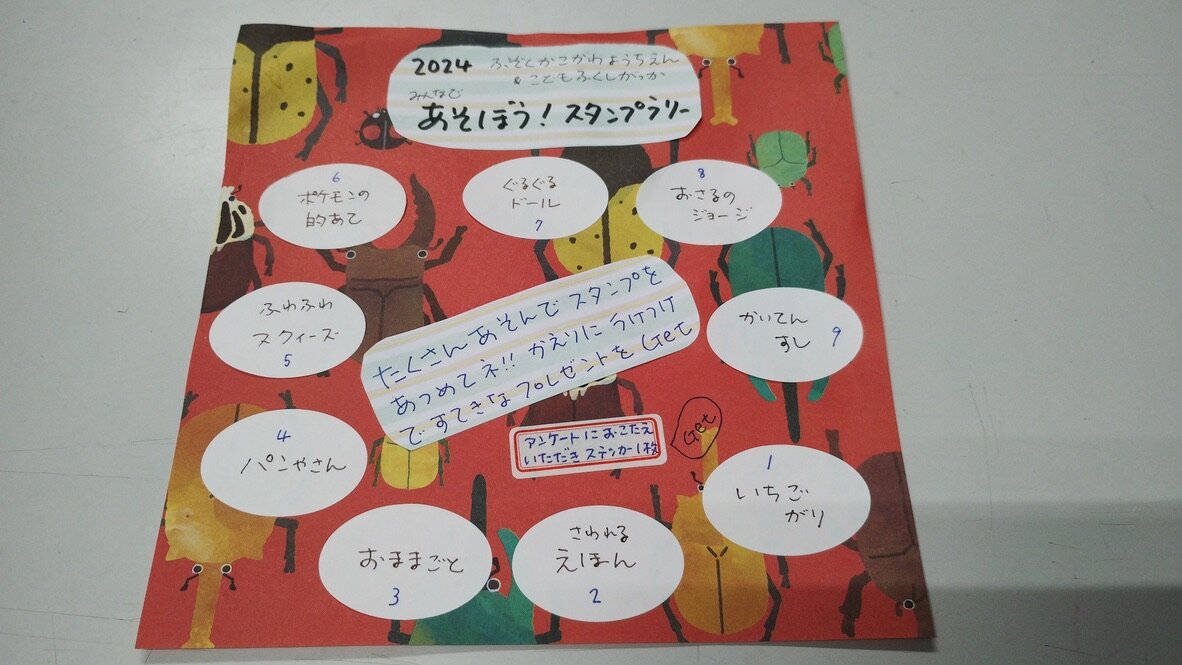 2024 ふぞくかこがわようちえん
& こどもふくしがっか
みんなで
あそぼう! スタンプラリー
6
ポケモンの
的あて
ぐるぐる
ドール
7
8
おさるの
ジョージ
ふわふわ
スクィーズ
5
たくさん あそんで スタンプを
あつめてネ!! かえりに うけつけ
で すてきな プレゼントを Get
かいてん
すし 9
アンケートに おこたえ
いただき ステッカー1枚
Get
4
パンやさん
1
いちご
がり
おままごと
3
さわれる
えほん
2